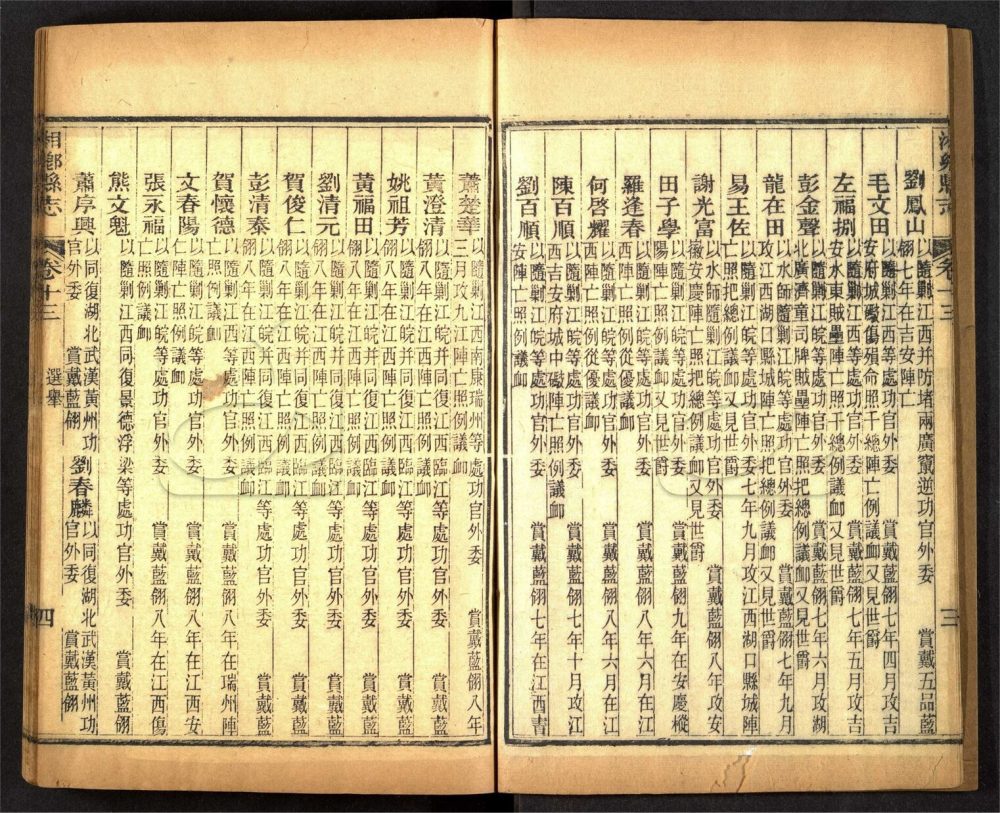 湘鄉縣志 卷十三 三
劉鳳山 以隨剿江西并防堵兩廣竄逆功官外委 賞戴五品藍
翎七年在吉安陣亡
毛文田 以隨剿江西等處功官外委 賞戴藍翎七年四月攻吉
安府城礮傷殞命照千總陣亡例議衈又見世爵
左福捌 以隨剿江西等處功官外委 賞戴藍翎七年五月攻吉
安水東賊壘陣亡照千總例議衈又見世爵
彭金聲 以隨剿江皖等處功官外委 賞戴藍翎七年六月攻湖
北廣濟童司牌賊壘陣亡照把總例議衈又見世爵
龍在田 以水師隨剿江皖等處功官外委 賞戴藍翎七年九月
攻江西湖口縣城陣亡照把總例議衈又見世爵
易王佐 以隨剿江皖等處功官外委七年九月攻江西湖口縣城陣
亡照把總例議衈又見世爵
謝光富 以水師隨剿江皖等處功官外委 賞戴藍翎八年攻安
徽安慶陣亡照把總例議衈又見世爵
田子學 以隨剿江皖等處功官外委 賞戴藍翎九年在安慶樅
陽陣亡照例議衈又見世爵
羅逢春 以隨剿江皖等處功官外委 賞戴藍翎八年六月在江
西陣亡照例從優議衈
何啓耀 以隨剿江皖等處功官外委 賞戴藍翎八年六月在江
西陣亡照例從優議衈
陳百順 以隨剿江皖等處功官外委 賞戴藍翎七年十月攻江
西吉安府城中礮陣亡照例議衈
劉百順 以隨剿江皖等處功官外委 賞戴藍翎七年在江西吉
安陣亡照例議衈
蕭楚華 以隨剿江西南康瑞州等處功官外委 賞戴藍翎八年
三月攻九江陣亡照例議衈
黃澄清 以隨剿江皖并同復江西臨江等處功官外委 賞戴藍
翎八年在江西陣亡照例議衈
姚祖芳 以隨剿江皖并同復江西臨江等處功官外委 賞戴藍
翎八年在江西陣亡照例議衈
黃福田 以隨剿江皖并同復江西臨江等處功官外委 賞戴藍
翎八年在江西陣亡照例議衈
劉清元 以隨剿江皖并同復江西臨江等處功官外委 賞戴藍
翎八年在江西陣亡照例議衈
賀俊仁 以隨剿江皖并同復江西臨江等處功官外委 賞戴藍
翎八年在江西陣亡照例議衈
彭清泰 以隨剿江皖并同復江西臨江等處功官外委 賞戴藍
翎八年在江西陣亡照例議衈
賀懷德 以隨剿江皖等處功官外委 賞戴藍翎八年在瑞州陣
亡照例議衈
文春陽 以隨剿江皖等處功官外委 賞戴藍翎八年在江西安
仁陣亡照例議衈
張永福 以隨剿江皖等處功官外委 賞戴藍翎八年在江西傷
亡照例議衈
熊文魁 以隨剿江西同復景德浮梁等處功官外委 賞戴藍翎
蕭序興 以同復湖北武漢黃州功
官外委 賞戴藍翎
劉春麟 以同復湖北武漢黃州功
官外委 賞戴藍翎
湘鄉縣志 卷十三 選舉 四